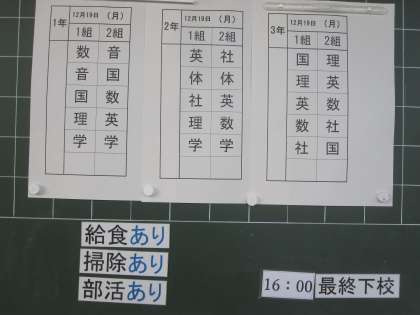 1年 12月19日 (月)
1組 2組
数 音
音 国
国 数
理 英
学 学
2年 12月19日 (月)
1組 2組
英 社
体 体
社 英
理 数
学 学
3年 12月19日 (月)
1組 2組
国 理
理 英
英 数
数 社
社 国
給食あり
掃除あり
部活あり
16:00 最終下校